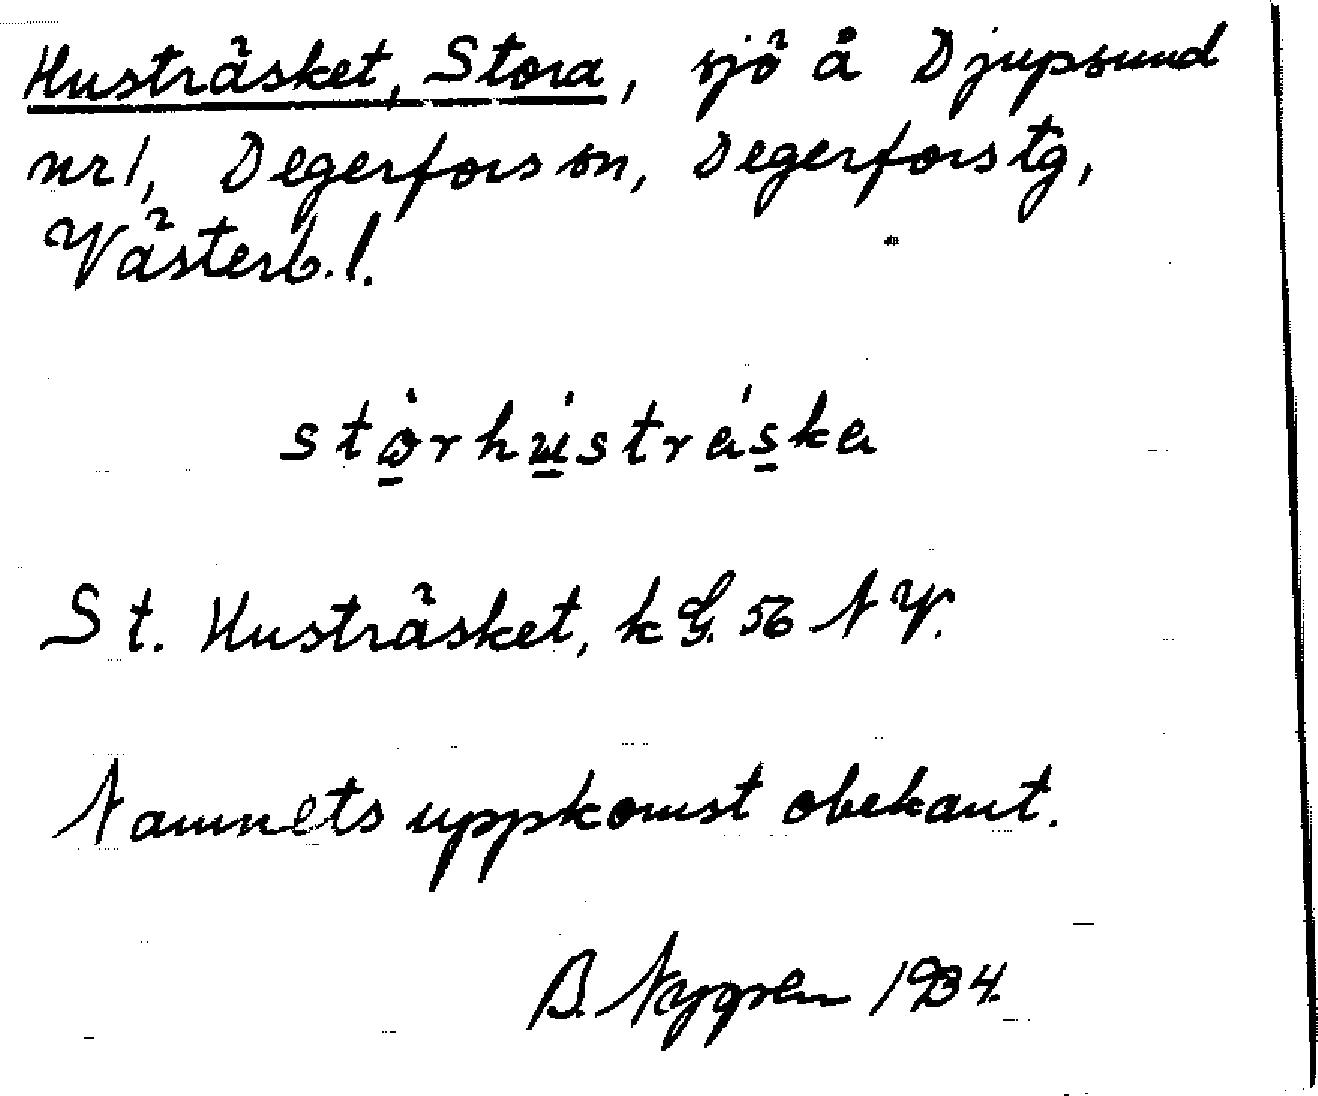 Husträsket, Stora, sjö å Djupsund
nr 1, Degerfors sn, Degerfors tg,
Västerb. l.
stȯ̱rhu̱̇stráṣka
St. Husträsket, k G. 56 N V.
Namnets uppkomst obekant.
B. Nygren 1934.